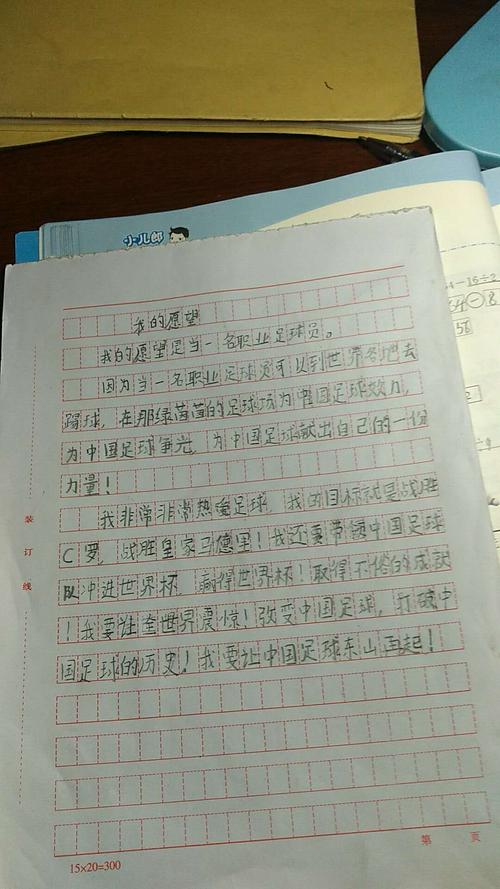 小儿郎
4-15÷2
64-8
56
我的愿望
我的愿望是当一名职业足球员。
因为当一名职业足球员可以到世界各地去
踢球，在那绿茵茵的足球场为中国足球效力，
为中国足球争光，为中国足球献出自己的一份
力量！
我非常非常热爱足球，我的目标就是战胜
C罗，战胜皇家马德里！我还要带领中国足球
队冲进世界杯，赢得世界杯！取得不俗的成就
！我要让全世界震惊！改变中国足球，打破中
国足球的历史！我要让中国足球东山再起！
装
订
线
15×20=300
第 页